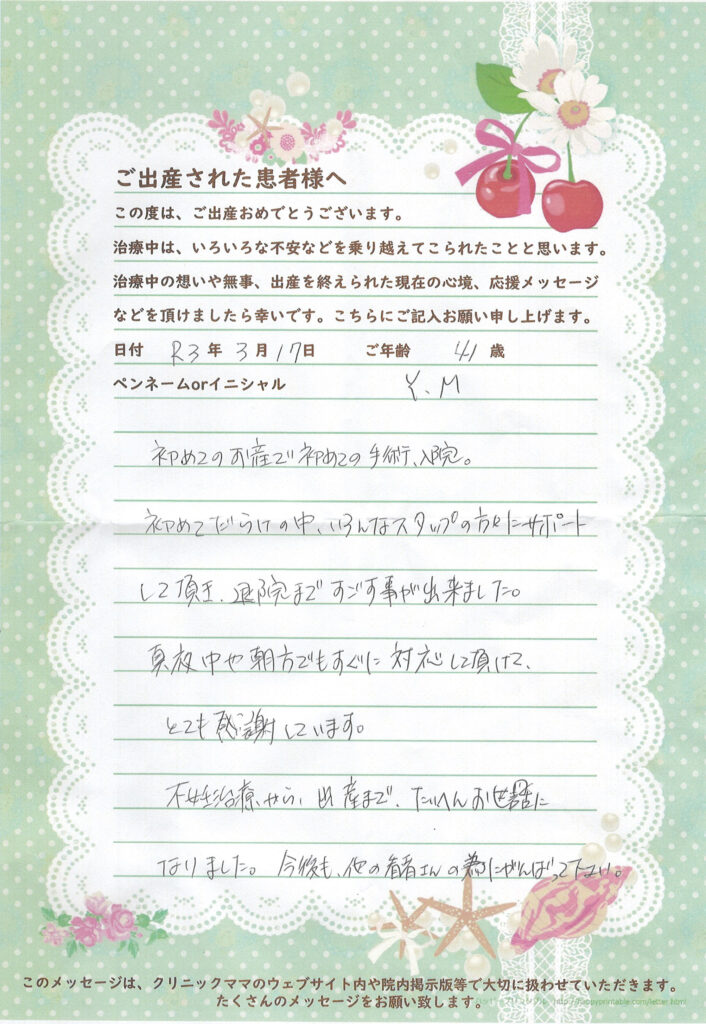 ご出産された患者様へ
この度は、ご出産おめでとうございます。
治療中は、いろいろな不安などを乗り越えてこられたことと思います。
治療中の想いや無事、出産を終えられた現在の心境、応援メッセージ
などを頂けましたら幸いです。こちらにご記入お願い申し上げます。
日付 R3年 3月 17日 ご年齢 41 歳
ペンネームorイニシャル Y.M
初めてのお産で初めての手術、入院。
初めてだらけの中、いろんなスタッフの方々にサポート
して頂き、退院まですごす事が出来ました。
真夜中や朝方でもすぐに対応して頂けて、
とても感謝しています。
不妊治療から、出産まで、たいへんお世話に
なりました。今後も、他の患者さんの為にがんばって下さい。
このメッセージは、クリニックママのウェブサイト内や院内掲示版等で大切に扱わせていただきます。
たくさんのメッセージをお願い致します。
http://happyprintable.com/letter.html